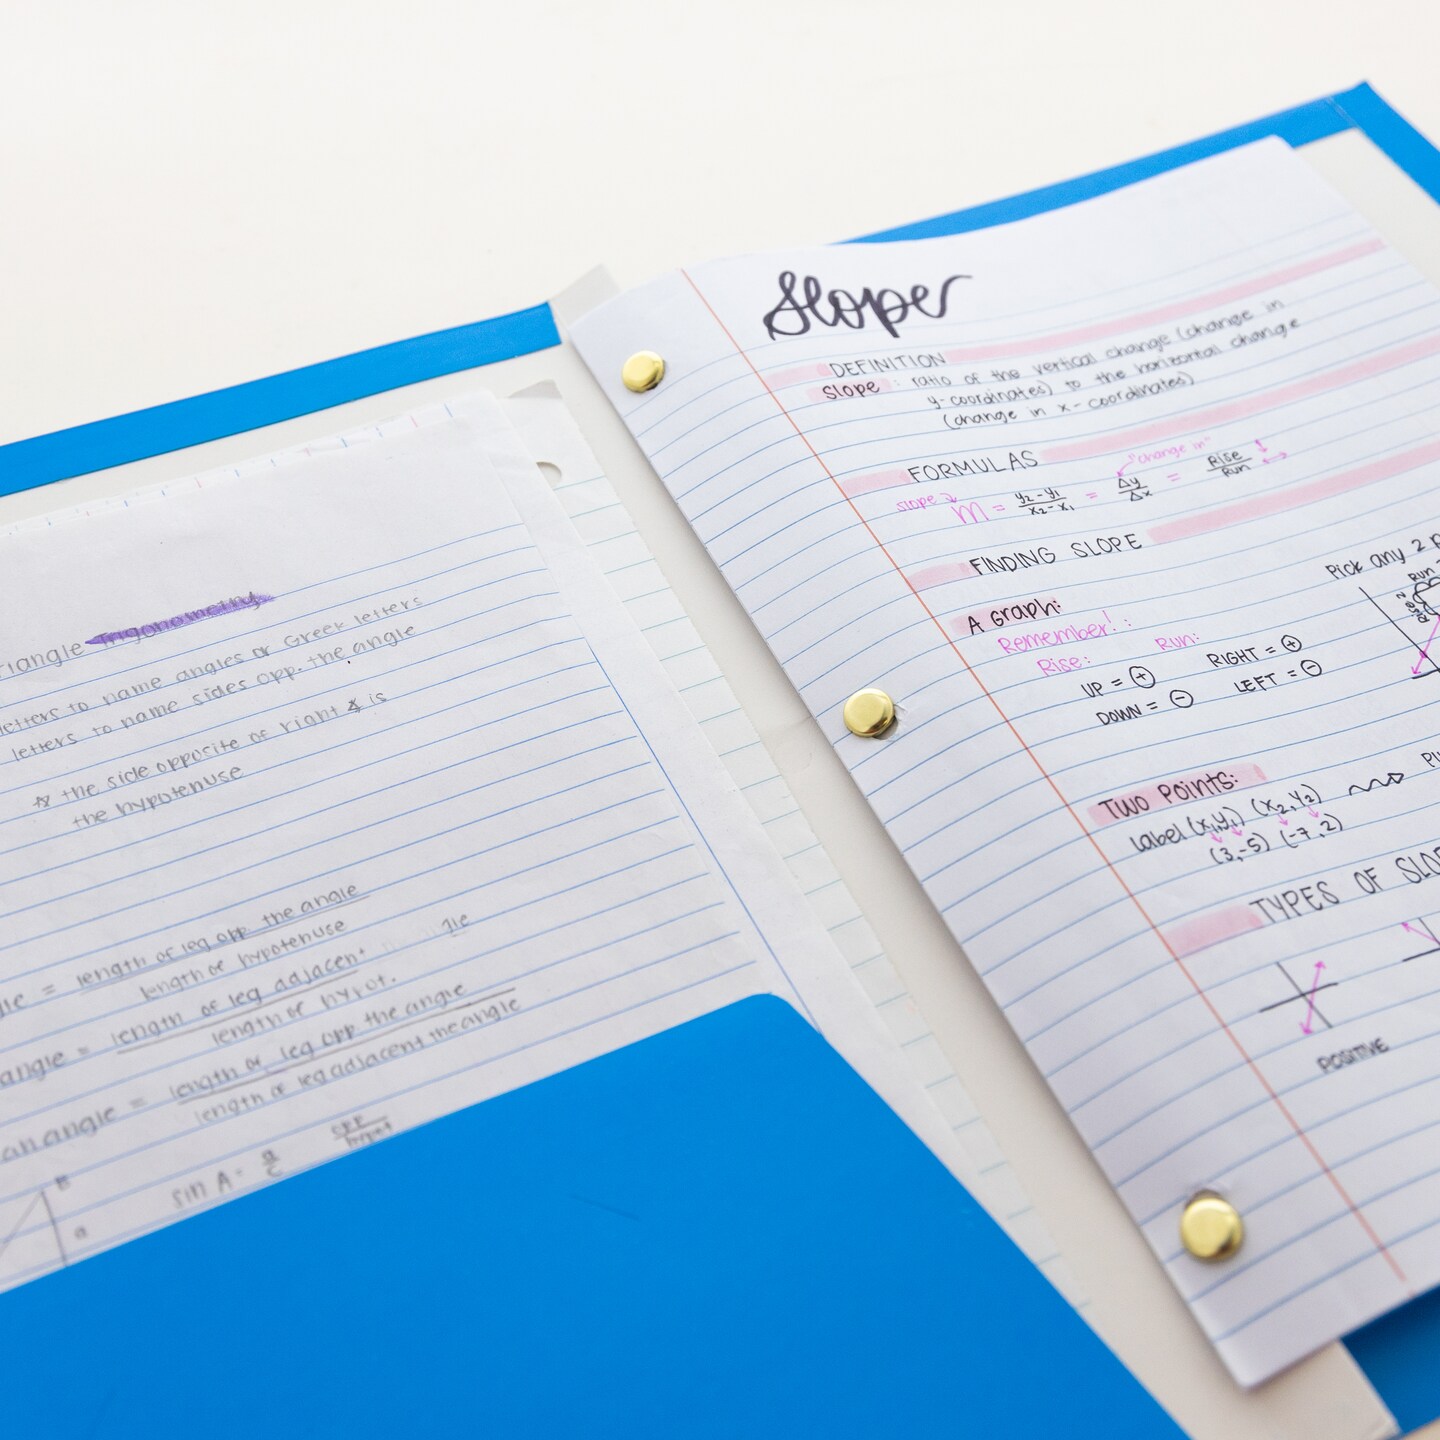 Triangle Trigonometry
letters to name angles or Greek letters
letters to name sides opp. the angle
☆ the side opposite of right ∡ is
the hypotenuse
angle = length of leg opp. the angle
length of hypotenuse
angle = length of leg adjacent
length of hypot.
an angle = length of leg opp the angle
length of leg adjacent the angle
sin A = a/c opp/hypot
B
a
Slope
DEFINITION
Slope : ratio of the vertical change (change in
y-coordinates) to the horizontal change
(change in x-coordinates)
FORMULAS
"change in"
slope m = y₂-y₁/x₂-x₁ = Δy/Δx = Rise/Run
FINDING SLOPE
Pick any 2
A Graph:
Run
Rise 2
Remember!:
Rise: Run:
UP = + RIGHT = +
DOWN = - LEFT = -
Two Points:
Label (x₁,y₁) (x₂,y₂)
(3,-5) (-7,2)
TYPES OF SLOP
POSITIVE